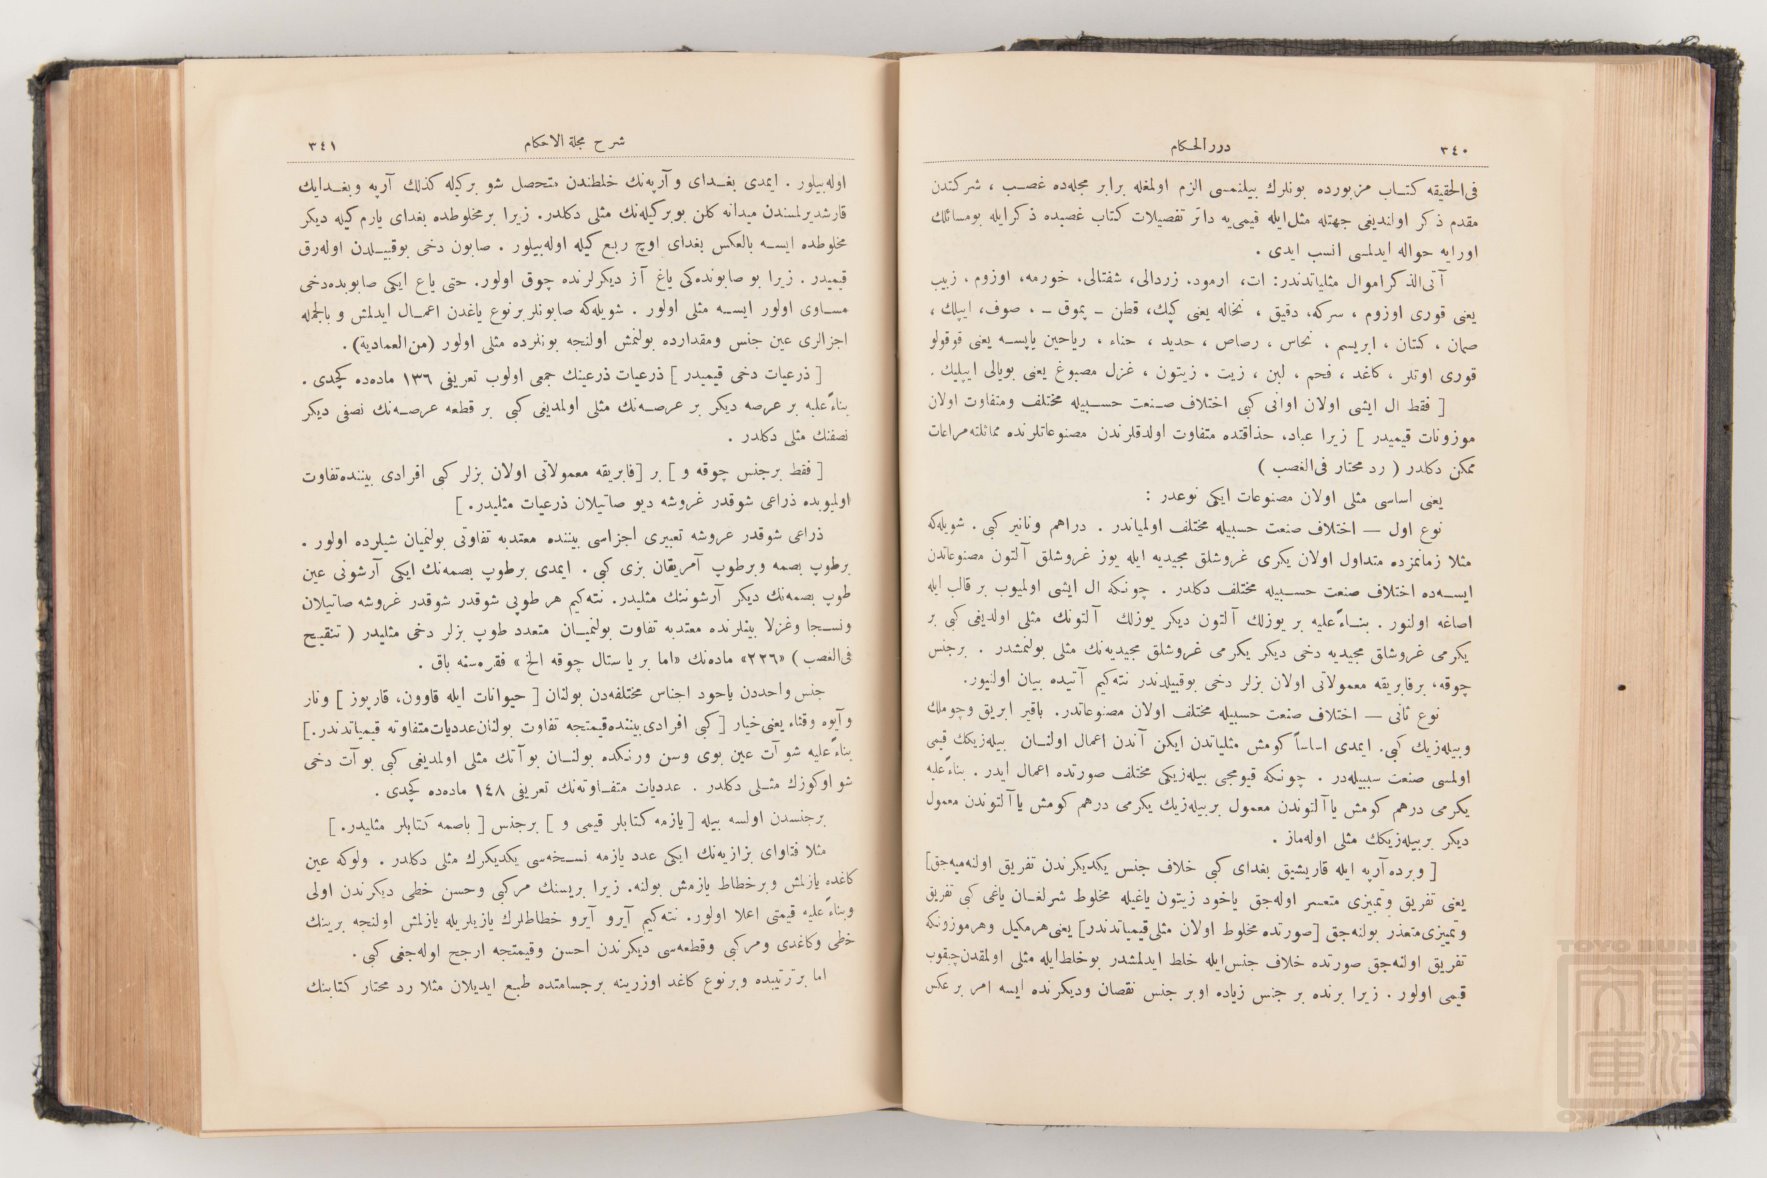 ٣٤٠
درر الحكام
فى الحقيقه كتاب مزبورده بونلرك بيلنمسى الزم اولمغله برابر مجله‌ده غصب ، شركتدن
مقدم ذكر اولنديغى جهتله مثل ايله قيمى‌يه دائر تفصيلات كتاب غصبده ذكر ايله بومسائلك
اورايه حواله ايدلمسى انسب ايدى .
آتى الذكر اموال مثلياتدندر: ات، ارمود، زردالى، شفتالى، خورمه، اوزوم ، زبيب
يعنى قورى اوزوم ، سركه، دقيق ، نخاله يعنى كپك، قطن ـ پموق ـ ، صوف، ايپلك ،
صمان ، كتان ، ابريسم ، نحاس ، رصاص ، حديد ، حناء ، رياحين يابسه يعنى قوقولو
قورى اوتلر ، كاغد ، فحم ، لبن ، زيت ، زيتون ، غزل مصبوغ يعنى بويالى ايپليك .
[ فقط ال ايشى اولان اوانى كبى اختلاف صنعت حسبيله مختلف ومتفاوت اولان
موزونات قيميدر ] زيرا عباد، حذاقتده متفاوت اولدقلرندن مصنوعاتلرنده مماثلته مراعات
ممكن دكلدر ( رد محتار فى الغصب )
يعنى اساسى مثلى اولان مصنوعات ايكى نوعدر :
نوع اول — اختلاف صنعت حسبيله مختلف اولمياندر . دراهم ونانير كبى . شويله‌كه
مثلا زمانمزده متداول اولان يكرى غروشلق مجيديه ايله يوز غروشلق آلتون مصنوعاتدن
ايسه‌ده اختلاف صنعت حسبيله مختلف دكلدر . چونكه ال ايشى اولميوب بر قالب ايله
اصاغه اولنور . بناءً عليه بر يوزلك آلتون ديكر يوزلك آلتونك مثلى اولديغى كبى بر
يكرمى غروشلق مجيديه دخى ديكر يكرمى غروشلق مجيديه‌نك مثلى بولنمشدر . برجنس
چوقه، برفابريقه معمولاتى اولان بزلر دخى بوقبيلدندر نته‌كيم آتيده بيان اولنيور.
نوع ثانى — اختلاف صنعت حسبيله مختلف اولان مصنوعاتدر. باقير ابريق وچوملك
وبيله‌زيك كبى. ايمدى اساساً كومش مثلياتدن ايكن آندن اعمال اولنان بيله‌زيكك قيمى
اولمسى صنعت سببيله‌در . چونكه قيومجى بيله‌زيكى مختلف صورتده اعمال ايدر . بناءً عليه
يكرمى درهم كومش يا آلتوندن معمول بر بيله‌زيك يكرمى درهم كومش يا آلتوندن معمول
ديكر بر بيله‌زيكك مثلى اوله‌ماز .
[ وبرده آرپه ايله قاريشيق بغداى كبى خلاف جنس يكديكرندن تفريق اولنه‌ميه‌جق]
يعنى تفريق وتمييزى متعسر اوله‌جق ياخود زيتون ياغيله مخلوط شرلغان ياغى كبى تفريق
وتمييزى متعذر بولنه‌جق [صورتده مخلوط اولان مثلى قيمياتدندر] يعنى هر مكيل وهر موزونكه
تفريق اولنه‌جق صورتده خلاف جنس ايله خلط ايدلمشدر بوخلط ايله مثلى اولمقدن چيقوب
قيمى اولور . زيرا برنده بر جنس زياده اوبر جنس نقصان وديكرنده ايسه امر بر عكس
شرح مجلة الاحكام
٣٤١
اوله‌بيلور . ايمدى بغداى و آرپه‌نك خلطندن متحصل شو بركيله كذلك آرپه وبغدايك
قارشديرلمسندن ميدانه كلن بوبر كيله‌نك مثلى دكلدر. زيرا بر مخلوطده بغداى يارم كيله ديكر
مخلوطده ايسه بالعكس بغداى اوچ ربع كيله اوله‌بيلور . صابون دخى بوقبيلدن اوله‌رق
قيميدر . زيرا بو صابونده‌كى ياغ آز ديكرلرنده چوق اولور. حتى ياغ ايكى صابونده‌دخى
مساوى اولور ايسه مثلى اولور . شويله‌كه صابونلر برنوع ياغدن اعمال ايدلمش و بالجمله
اجزالرى عين جنس ومقدارده بولنمش اولنجه بونلرده مثلى اولور (من العمادية) .
[ ذرعيات دخى قيميدر ] ذرعيات ذرعينك جمعى اولوب تعريفى ١٣٦ ماده‌ده كچدى .
بناءً عليه بر عرصه ديكر بر عرصه‌نك مثلى اولمديغى كبى بر قطعه عرصه‌نك نصفى ديكر
نصفنك مثلى دكلدر .
[ فقط برجنس چوقه و ] بر [فابريقه معمولاتى اولان بزلر كبى افرادى بيننده تفاوت
اولميوبده ذراعى شوقدر غروشه ديو صاتيلان ذرعيات مثليدر. ]
ذراعى شوقدر غروشه تعبيرى اجزاسى بيننده معتدبه تفاوتى بولنميان شيلرده اولور .
برطوپ بصمه وبرطوپ آمريقان بزى كبى . ايمدى برطوپ بصمه‌نك ايكى آرشونى عين
طوپ بصمه‌نك ديكر آرشوننك مثليدر. نته‌كيم هر طوپى شوقدر شوقدر غروشه صاتيلان
ونسجا وغزلا بينلرنده معتدبه تفاوت بولنميان متعدد طوپ بزلر دخى مثليدر ( تنقيح
فى الغصب ) «٢٢٦» ماده‌نك «اما بر پاستال چوقه الخ» فقره‌سنه باق .
جنس واحددن ياخود اجناس مختلفه‌دن بولنان [ حيوانات ايله قاوون، قارپوز ] ونار
و آيوه وقثاء يعنى خيار [ كبى افرادى بيننده قيمتجه تفاوت بولنان عدديات متفاوته قيمياتدندر.]
بناءً عليه شو آت عين بوى وسن ورنكده بولنان بو آتك مثلى اولمديغى كبى بو آت دخى
شو اوكوزك مثلى دكلدر . عدديات متفاوته‌نك تعريفى ١٤٨ ماده‌ده كچدى .
برجنسدن اولسه بيله [ يازمه كتابلر قيمى و ] برجنس [ باصمه كتابلر مثليدر. ]
مثلا فتاواى بزازيه‌نك ايكى عدد يازمه نسخه‌سى يكديكرك مثلى دكلدر . ولوكه عين
كاغده يازلمش وبر خطاط يازمش بولنه. زيرا بريسنك مركبى وحسن خطى ديكرندن اولى
وبناءً عليه قيمتى اعلا اولور. نته‌كيم آيرو آيرو خطاطلرك يازيلريله يازلمش اولنجه برينك
خطى وكاغدى ومركبى وقطعه‌سى ديكرندن احسن وقيمتجه ارجح اوله‌جغى كبى .
اما برترتيبده وبرنوع كاغد اوزرينه برجسامتده طبع ايديلان مثلا رد محتار كتابنك
TOYO BUNKO